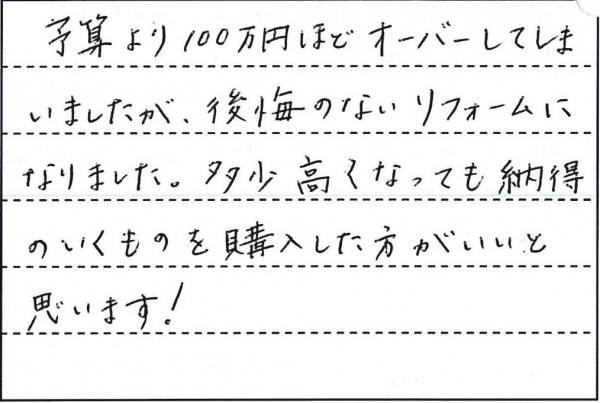 予算より100万円ほどオーバーしてしま
いましたが、後悔のないリフォームに
なりました。多少高くなっても納得
のいくものを購入した方がいいと
思います!